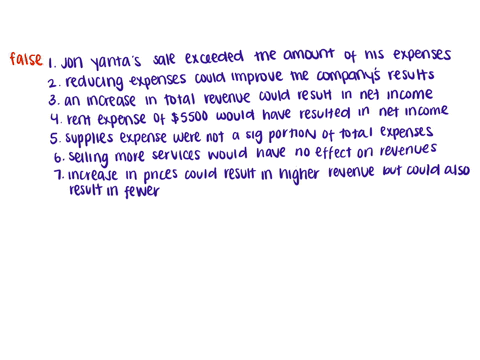 false 1. Jon Yanta's sale exceeded the amount of his expenses
2. reducing expenses could improve the company's results
3. an increase in total revenue could result in net income
4. rent expense of $5500 would have resulted in net income
5. supplies expense were not a sig portion of total expenses
6. selling more services would have no effect on revenues
7. increase in prices could result in higher revenue but could also
result in fewer